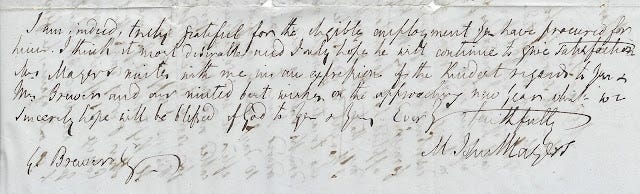 I am, indeed, truly grateful for the eligible employment you have procured for
him. I think it most desirable and I only hope he will continue to give satisfaction
Mrs Mayers unites with me in an expression of the kindest regards to you &
Mrs Brewer and our united best wishes on the approaching new year which we
Sincerely hope will be blessed of God to you & yours Ever faithfully
Brewer
M John Mayers